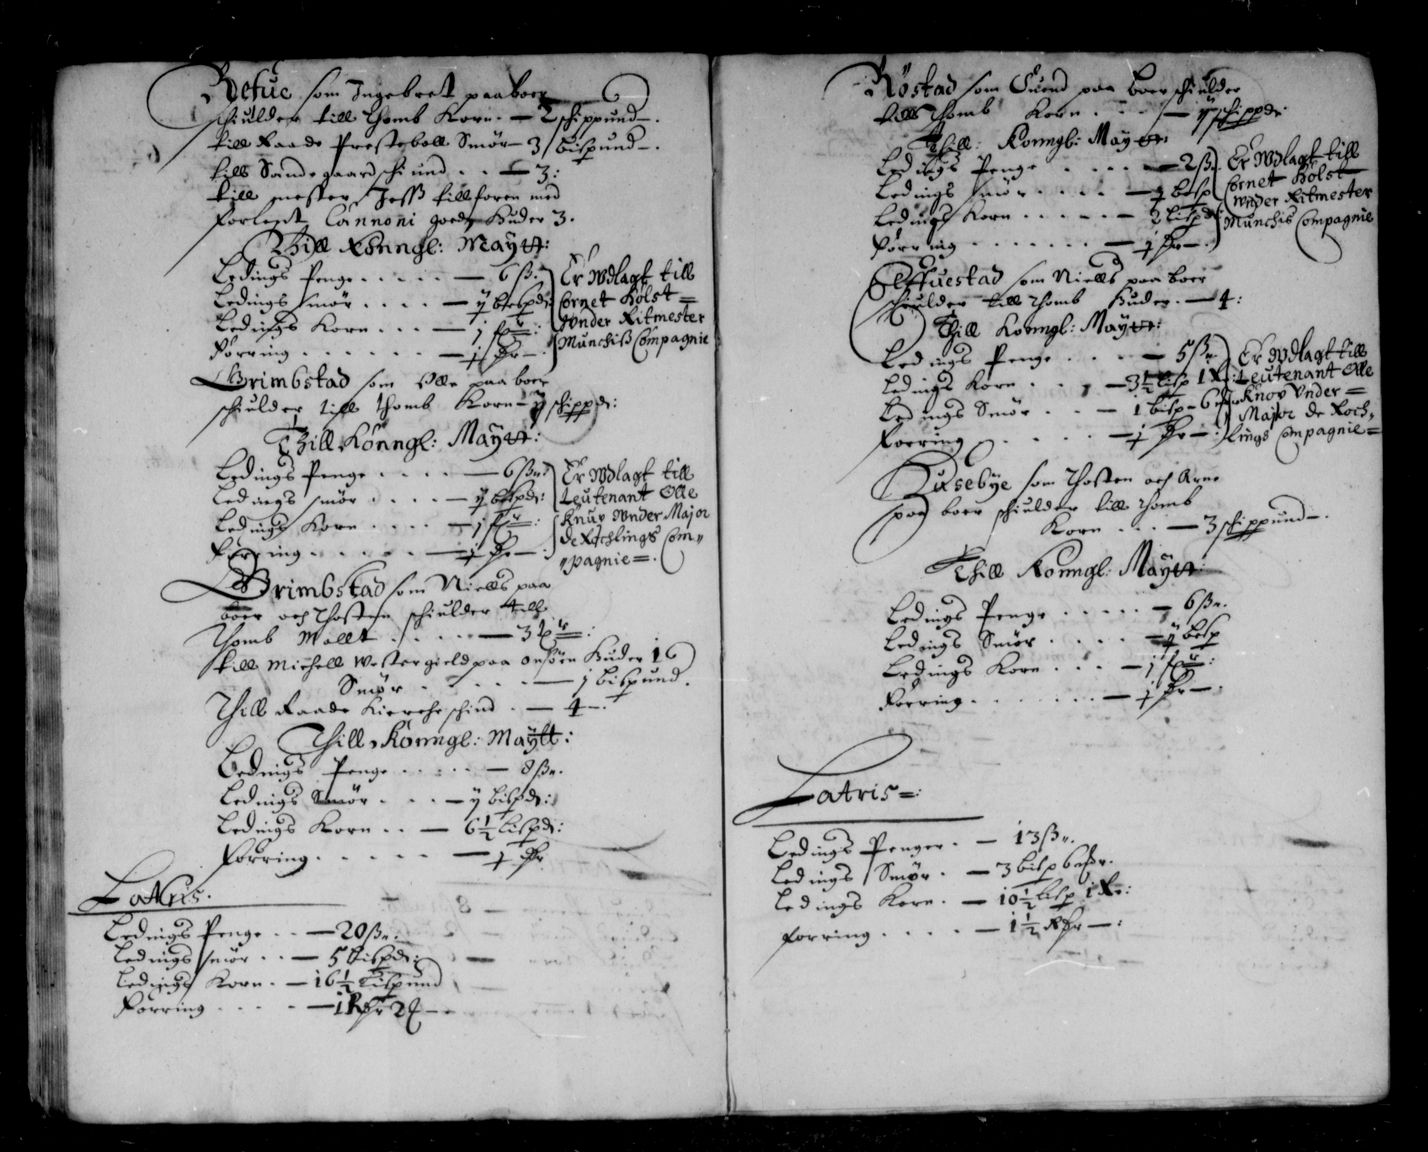 Refue som Ingebret paaboer
schiulder till Thomb Korn — 2 schippund —.
till Raade Presteboll Smör — 3 bispund —.
till Sandegaard schiund . . — 3 :
till mester Jesß tillforen med
forlent Cannoni gods Huder 3.
Till Konngl: Maytt:
Ledings Penge . . . . . — 6 ß.
Ledings smör . . . . — ij bispd:
Ledings Korn . . . — j
Förring . . . . . . — j
Er Udlagt till
Cornet Holst =
Vnder Ritmester
Munchiß Compagnie
Grimbstad som Olle paa boer
schiulder till Thomb Korn — ij schippd:
Thill Könngl: Maytt:
Ledings Penge . . . . — 6 ß.
Ledings smör . . . . — ij bispd:
Ledings Korn . . . . — j
Förring . . . . . . — j
Er Udlagt till
Leutenant Olle
Knuv Vnder Major
de Rochlings Com„
„pagnie =.
Grimbstad som Niells paa
boer och Thosten schiulder till
Thomb Mallt . . . . — 3
till Michell Westergield paa Onsöen Huder 16
Smör . . . . . — j bispund.
Thill Raade Kircke schind . — 4 —.
Thill Könngl: Maytt:
Ledings Penge . . . . . — 8 ß.
Ledings Smör . . . — ij bispd:
Ledings Korn . . — 6½ bispd:
Forring . . . . . — j
Latris.
Ledings Penge . . — 20 ß.
Ledings smör . . — 5 bispd:
Ledings Korn . — 16½ bispund
Forring . . . . —
Röstad som Suend paa boer schiulder
till Thomb Korn . . . — ij schippd:
Thill: Konngl: Maytt:
Ledings Penge . . . . — 2 ß.
Ledings smör . . . . — j bisp
Ledings Korn . . . . . — 2 bispd
Förring . . . . . . . — j
Er Udlagt till
Cornet Holst
Vnder Ritmester
Munchis Compagnie
som Niells paa boer
schiulder till Thomb Huder . — 4 :
Thill Konngl: Maytt:
Ledings Penge . . . . — 5 ß.
Ledings Korn . . . — 3½ bisp 1
Ledings Smör . . . — 1 bisp — 6
Forring . . . . . . — j
Er Udlagt till
Leutenant Olle
Knov Vnder =
Major de Roch„
lings Compagnie =
Husebÿe som Thosten och Arne
paa boer schiulder till Thomb
Korn . . . — 3 schippund —.
Thill Konngl: Maytt:
Ledings Penge . . . . . — 6 ß.
Ledings Smör . . . . — ij bisp
Ledings Korn . . . — j
Forring . . . . . . . — j
Latris =:
Ledings Penger . — 13 ß.
Ledings Smör . — 3 bisp 6
Ledings Korn . — 10½ bisp 1
Forring . . . . . — 1½